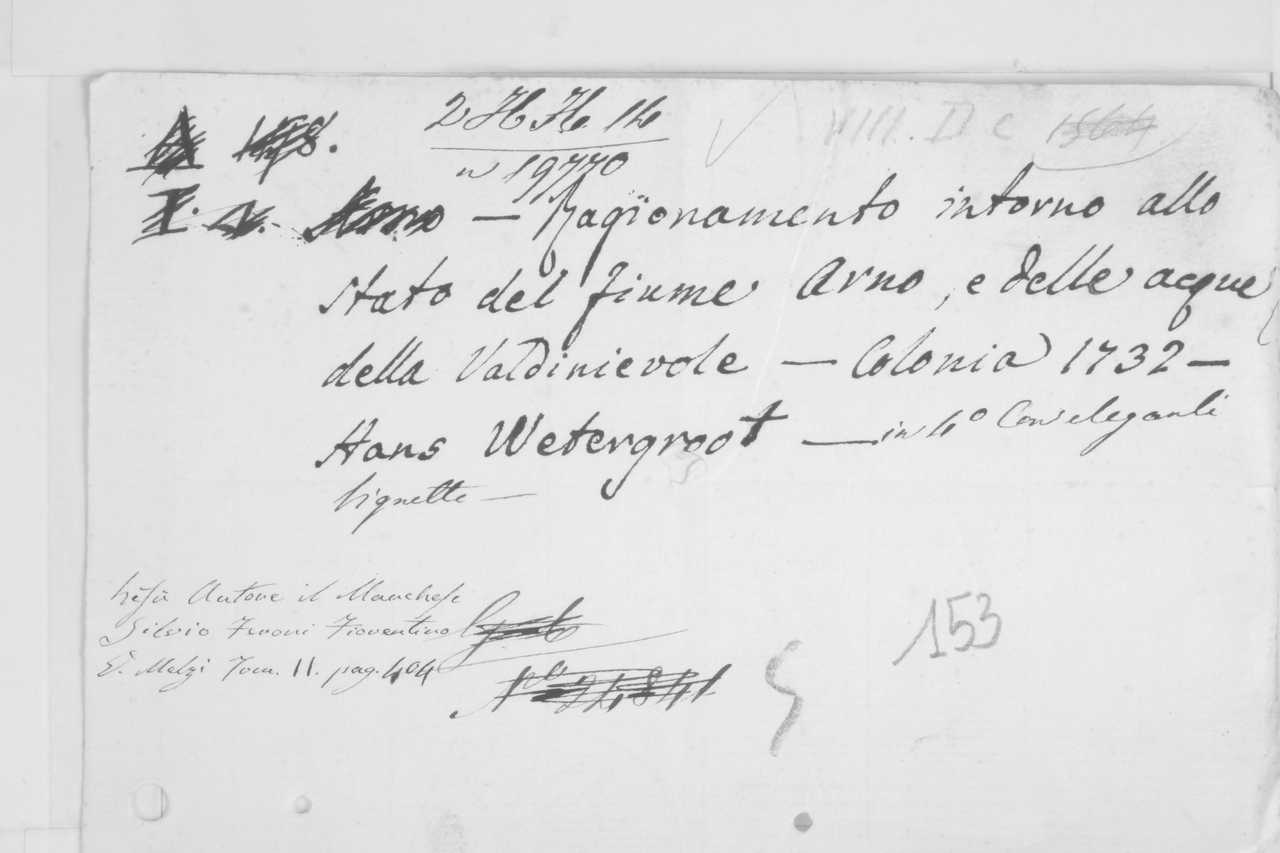 2 H H. 14
n 19770
VIII. D C
— Ragionamento intorno allo
stato del fiume Arno, e delle acque
della Valdinievole — Colonia 1732 —
Hans Wetergroot — in 4º Con eleganti
vignette —
Autore il Marchese
Silvio Feroni Fiorentino
V. Melzi Tom. II. pag. 404
153